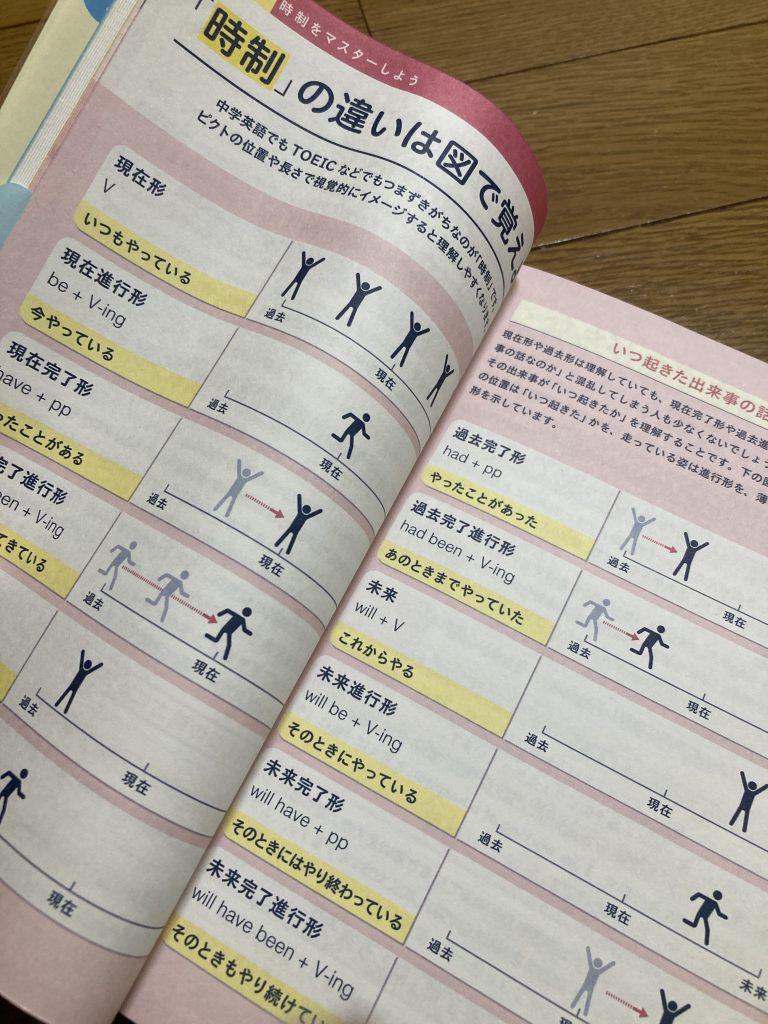 時制をマスターしよう
「時制」の違いは図で覚え
中学英語でも TOEIC などでもつまずきがちなのが「時制」です。
ピクトの位置や長さで視覚的にイメージすると理解しやすくなります
現在形
V
いつもやっている
過去
現在
現在進行形
be + V-ing
今やっている
過去
現在
現在完了形
have + pp
ったことがある
過去
現在
完了進行形
been + V-ing
てきている
過去
現在
過去
現在
現在
いつ起きた出来事の話
現在形や過去形は理解していても、現在完了形や過去進
事の話なのか」と混乱してしまう人も少なくないでしょう
その出来事が「いつ起きたか」を理解することです。下の図
の位置は「いつ起きた」かを、走っている姿は進行形を、薄
形を示しています。
過去完了形
had + pp
やったことがあった
過去
現在
過去完了進行形
had been + V-ing
あのときまでやっていた
過去
現在
未来
will + V
これからやる
過去
現在
未来進行形
will be + V-ing
そのときにやっている
過去
現在
未来
未来完了形
will have + pp
そのときにはやり終わっている
過去
現在
未来完了進行形
will have been + V-ing
そのときもやり続けてい